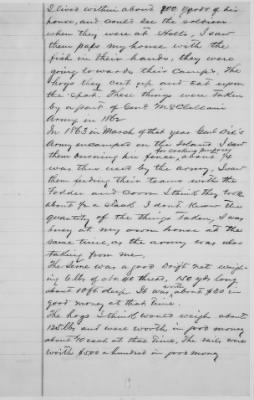 I lived within about 900 yards of his
house, and could see the soldiers
when they were at Halls, I saw
them pass my house with the
fish in their hands, they were
going towards their Camps. The
hogs they cut up and eat upon
the spot. These things were taken
by a part of Genl McClellans
Army in 1862
In 1863 in March of that year Genl Dix's
Army encamped on the Island I saw
for cooking purposes
them burning his fence, about 3/4
was then used by the army, I saw
them feeding their teams with the
Fodder and Corn I think they took
about 1/2 a Stack I don't know the
quantity of the things taken, I was
busy at my own house at the
same time, as the army was also
taking from me.
The Seine was a good Drift net weigh-
ing lbs of thread, 150 yds long
about 10 ft deep. It was worth about $30 in
good money at that time.
The hogs I think would weigh about
125 lbs and were worth in good money
about $10 each at that time, The rails were
worth $5.00 a hundred in good money